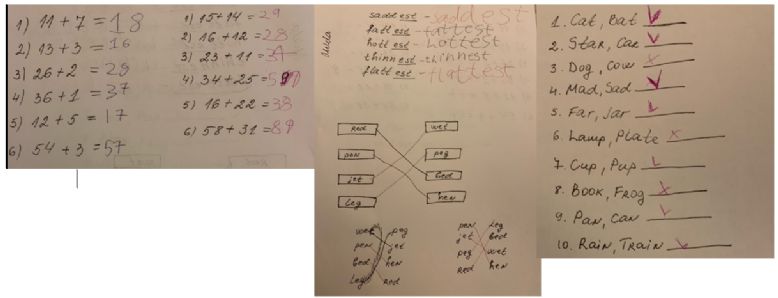 1) 11 + 7 = 18
2) 13 + 3 = 16
3) 26 + 2 = 28
4) 36 + 1 = 37
5) 12 + 5 = 17
6) 54 + 3 = 57
1) 15 + 14 = 29
2) 16 + 12 = 28
3) 23 + 11 =
4) 34 + 25 = 59
5) 16 + 22 = 38
6) 58 + 31 = 89
saddest - saddest
fattest - fattest
hottest - hottest
thinnest - thinnest
flattest - flattest
Red wet
pen peg
jet bed
Leg hen
wet peg
pen jet
bed hen
Leg Red
pen Leg
jet bed
peg wet
Red hen
1. Cat, Bat
2. Star, Car
3. Dog, Cow
4. Mad, Sad
5. Far, Jar
6. Lamp, Plate
7. Cup, Pup
8. Book, Frog
9. Pan, Can
10. Rain, Train